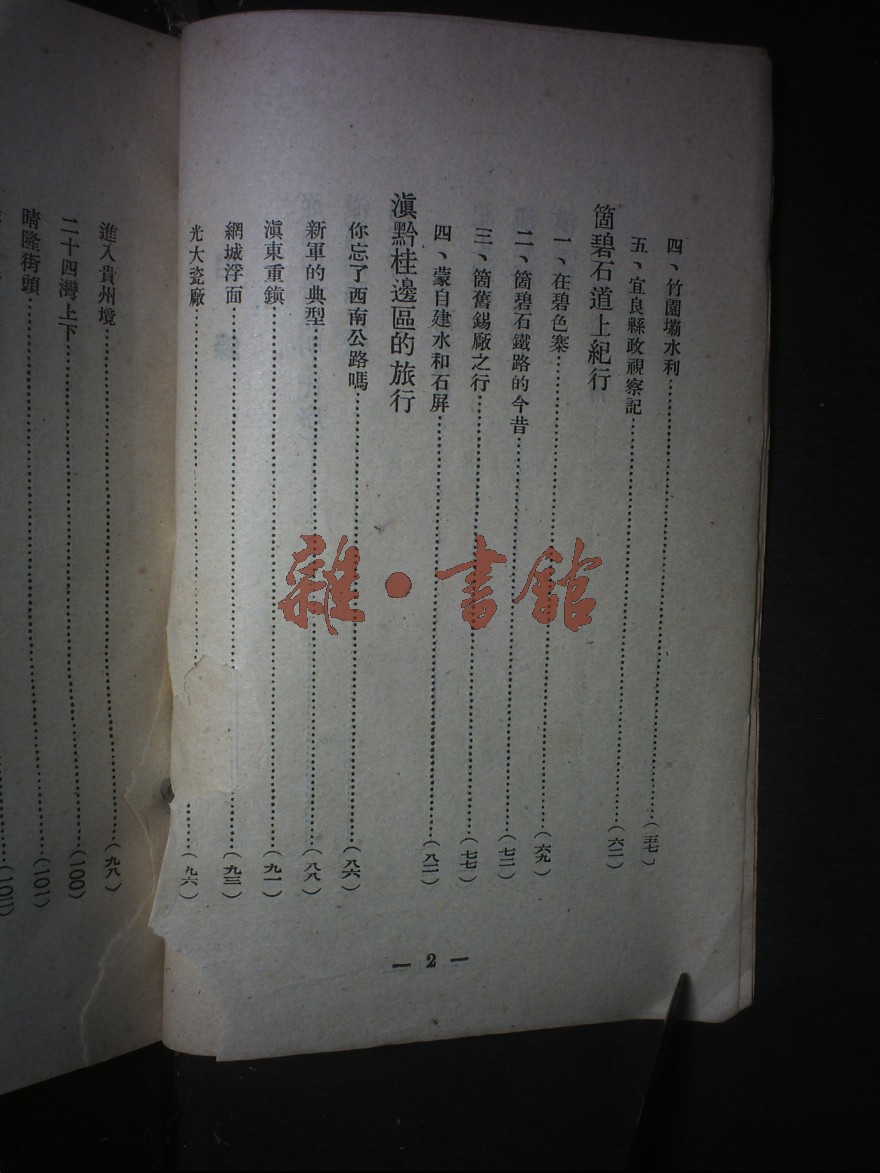 四、竹園壩水利……(五七)
五、宜良縣政視察記……(六二)
箇碧石道上紀行
一、在碧色寨……(六九)
二、箇碧石鐵路的今昔……(七二)
三、箇舊錫廠之行……(七七)
四、蒙自建水和石屏……(八二)
滇黔桂邊區的旅行
你忘了西南公路嗎……(八六)
新軍的典型……(八八)
滇東重鎮……(九一)
網城浮面……(九三)
光大瓷廠……(九六)
— 2 —
進入貴州境……(九八)
二十四灣上下……(100)
晴隆街頭……(101)
雜·書館